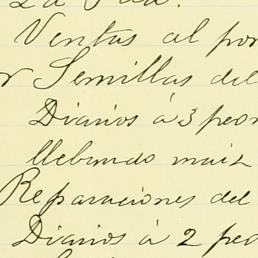 La Paz.
Ventas al por
Semillas del
Diarios á 3 peon
llebando maiz
Reparaciones del
Diarios á 2 peo